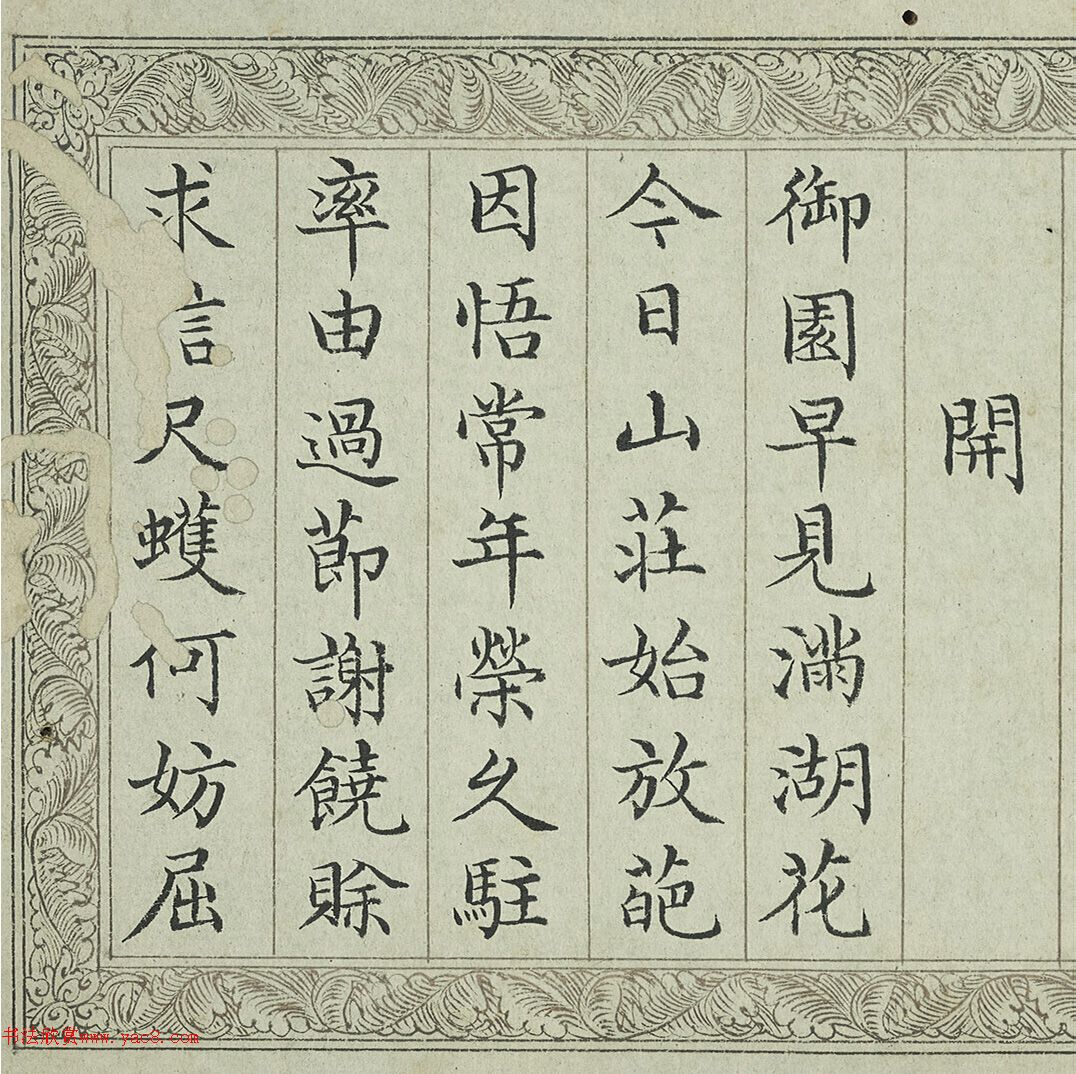 開
御園早見滿湖花
今日山莊始放葩
因悟常年榮久駐
率由過節謝饒賒
求言尺蠖何妨屈
书法欣赏www.yac8.com